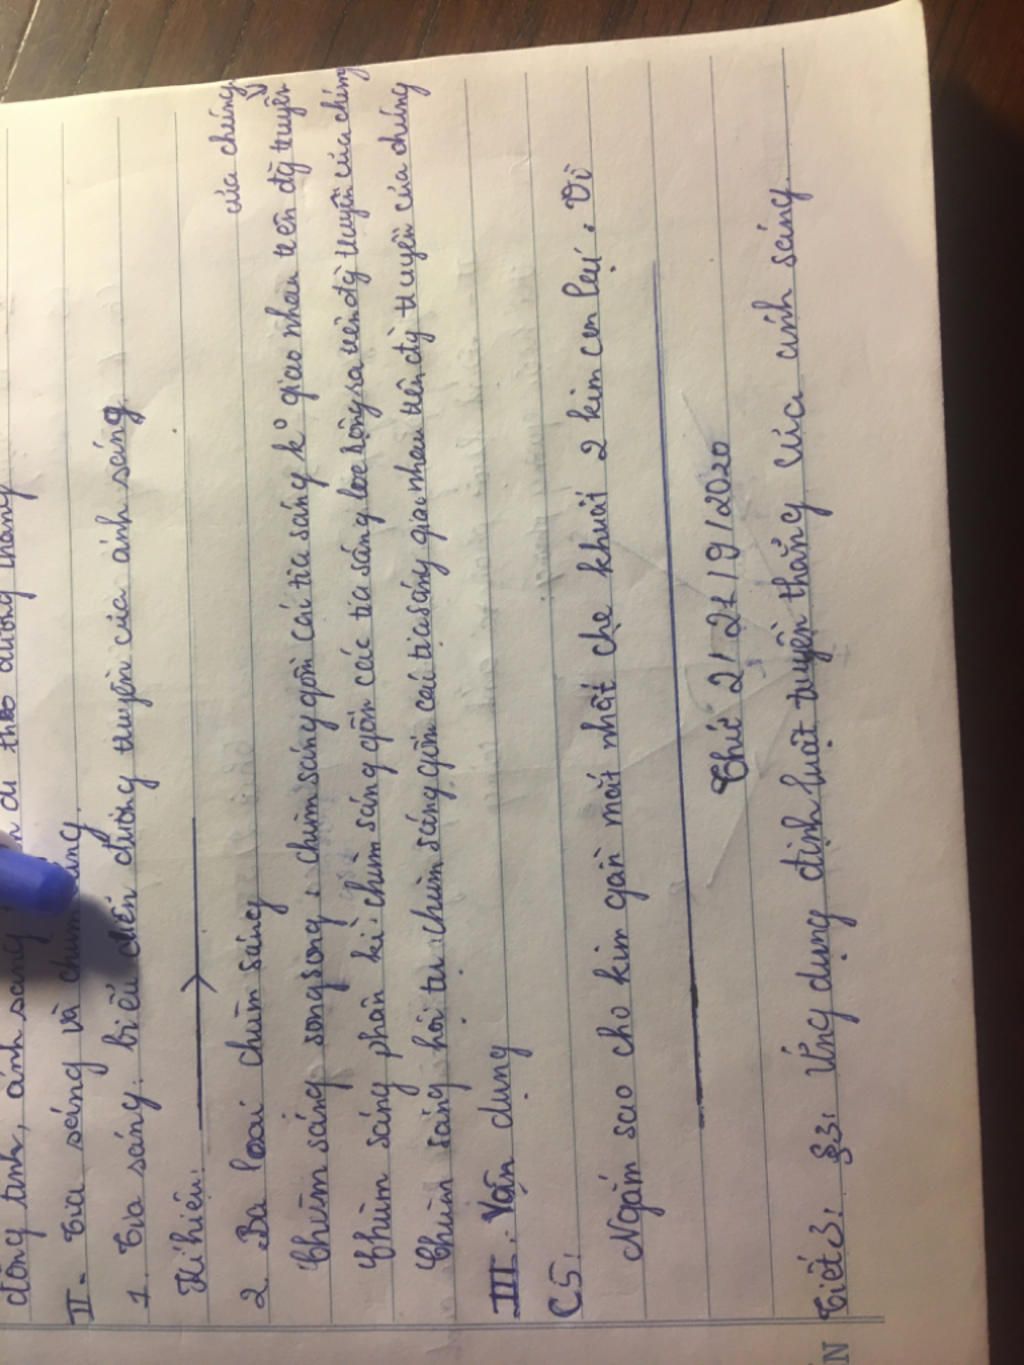 đồng tính, ánh sáng đi theo đường thẳng
II. Tia sáng và chùm sáng.
1. Tia sáng: biểu diễn đường truyền của ánh sáng.
Kí hiệu:
2. Ba loại chùm sáng
của chúng
Chùm sáng song song: chùm sáng gồm các tia sáng k° giao nhau trên đg truyền
Chùm sáng phân kì: chùm sáng gồm các tia sáng loe rộng ra trên đg truyền của chúng
Chùm sáng hội tụ: chùm sáng gồm các tia sáng giao nhau trên đg truyền của chúng
III. Vận dụng
C5:
Ngắm sao cho kim gần mắt nhất che khuất 2 kim con lại. Vì
Thứ 2, 21/9/2020
Tiết 3: §3: Ứng dụng định luật truyền thẳng của ánh sáng.
ẬN